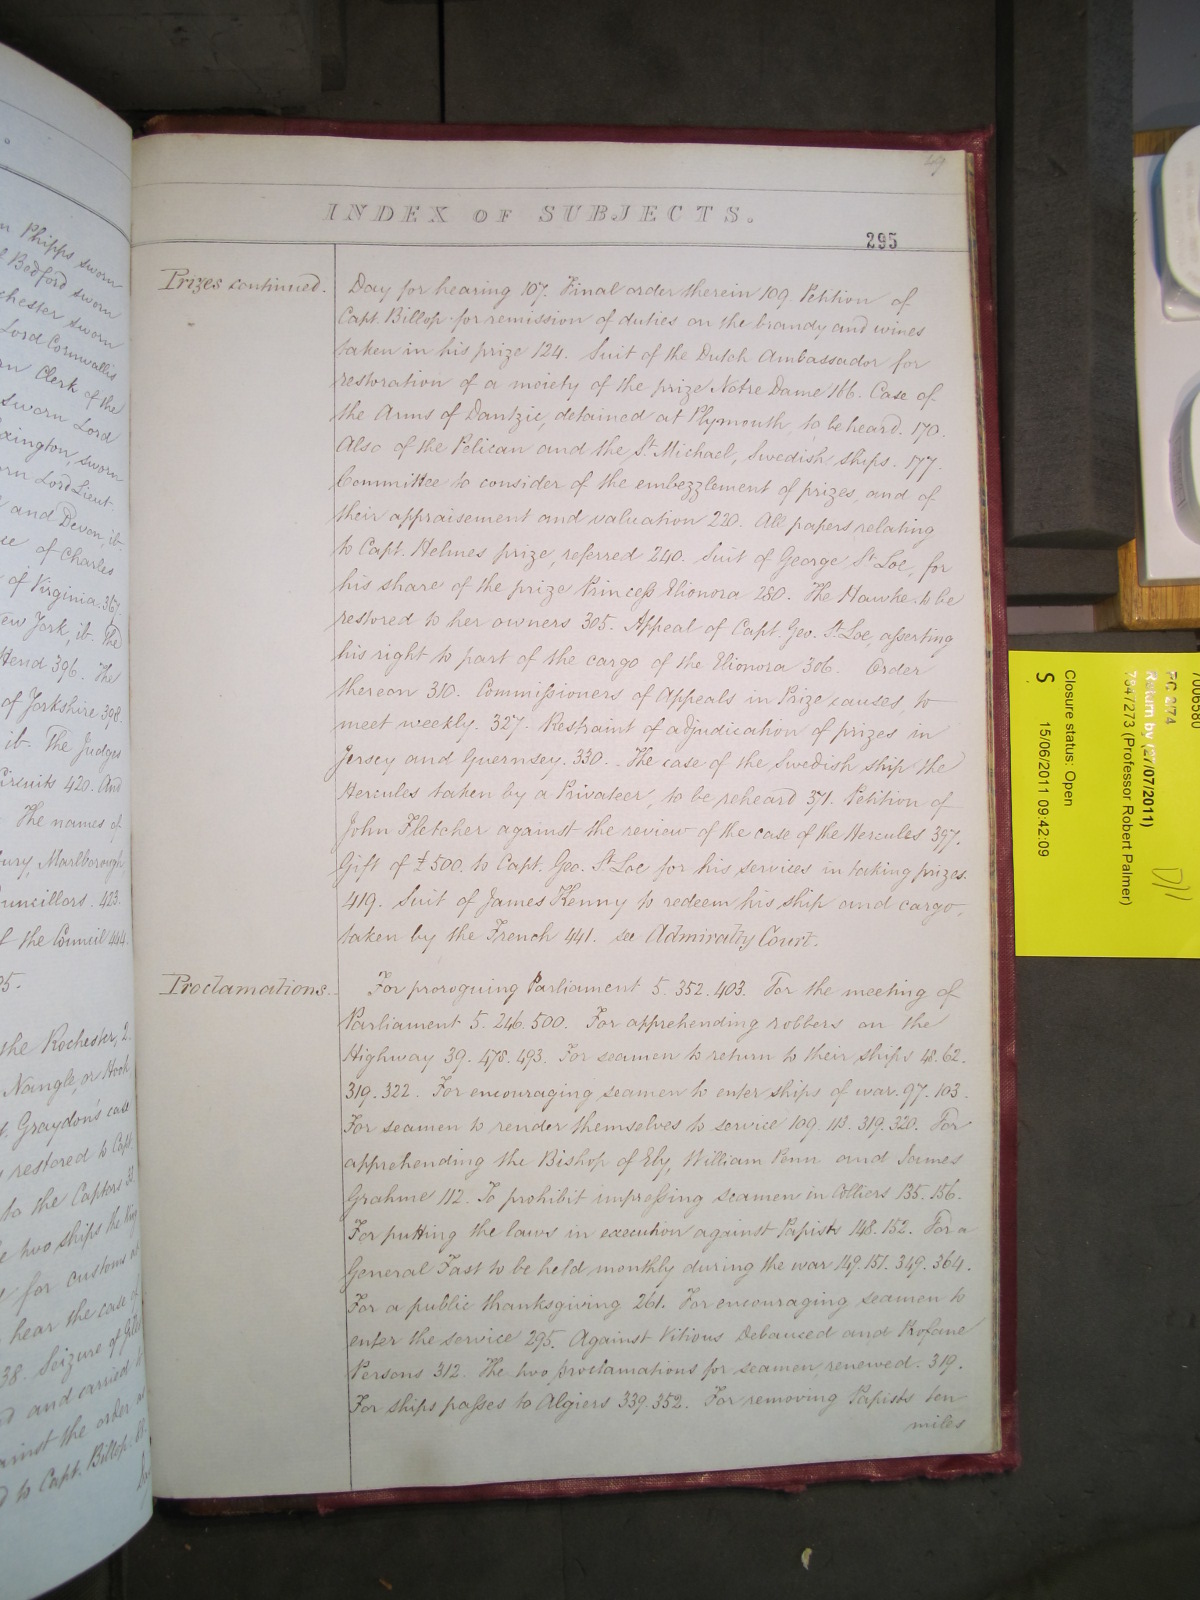 n Phipps sworn
Bedford sworn
chester sworn
Lord Cornwallis
rn Clerk of the
sworn Lord
xington, sworn
orn Lord Lieut.
and Devon, it.
ue of Charles
of Virginia. 367.
ew York, it. The
ttend 396. The
of Yorkshire 398.
it. The Judges
Circuits 420. And
The names of
bury, Marlborough
uncillors. 423.
f the Council 444.
95.
the Rochester, 2.
Nangle, or Hook
t. Graydon's case
restored to Capt.
to the Captors 33.
e two ships the King
for customs
hear the case of
38. Seizure of
d and carried
ainst the order
d to Capt. Billop.
49
INDEX OF SUBJECTS.
295
Prizes continued.
Day for hearing 107. Final order therein 109. Petition of
Capt. Billop for remission of duties on the brandy and wines
taken in his prize 124. Suit of the Dutch Ambassador for
restoration of a moiety of the prize Notre Dame 166. Case of
the Arms of Dantzic, detained at Plymouth, to be heard. 170.
Also of the Pelican and the St. Michael, Swedish ships. 177.
Committee to consider of the embezzlement of prizes, and of
their appraisement and valuation 220. All papers relating
to Capt. Helmes prize, referred 240. Suit of George St Loe, for
his share of the prize Princess Elionora 280. The Hawke to be
restored to her owners 305. Appeal of Capt. Geo. St. Loe, asserting
his right to part of the cargo of the Elionora 306. Order
thereon 310. Commissioners of Appeals in Prize causes, to
meet weekly. 327. Restraint of adjudication of prizes in
Jersey and Guernsey. 330. The case of the Swedish ship the
Hercules taken by a Privateer, to be reheard 371. Petition of
John Fletcher against the review of the case of the Hercules 397.
Gift of £500. to Capt. Geo. St. Loe for his services in taking prizes.
419. Suit of James Kenny to redeem his ship and cargo,
taken by the French 441. see Admiralty Court.
Proclamations.
For proroguing Parliament 5. 352. 403. For the meeting of
Parliament 5. 246. 500. For apprehending robbers on the
Highway 39. 478. 493. For seamen to return to their ships 48. 62.
319. 322. For encouraging seamen to enter ships of war. 97. 103.
For seamen to render themselves to service 109. 113. 319. 320. For
apprehending the Bishop of Ely, William Penn and James
Grahme 112. To prohibit impressing seamen in Colliers 135. 156.
For putting the laws in execution against Papists 148. 152. For a
General Fast to be held monthly during the war 149. 151. 349. 364.
For a public thanksgiving 261. For encouraging seamen to
enter the service 295. Against Vitious Debauced and Profane
Persons 312. The two proclamations for seamen, renewed. 319.
For ships passes to Algiers 339. 352. For removing Papists ten
miles
7006580
PC 2/74
Return by (27/07/2011)
7347273 (Professor Robert Palmer)
Closure status: Open
S 15/06/2011 09:42:09